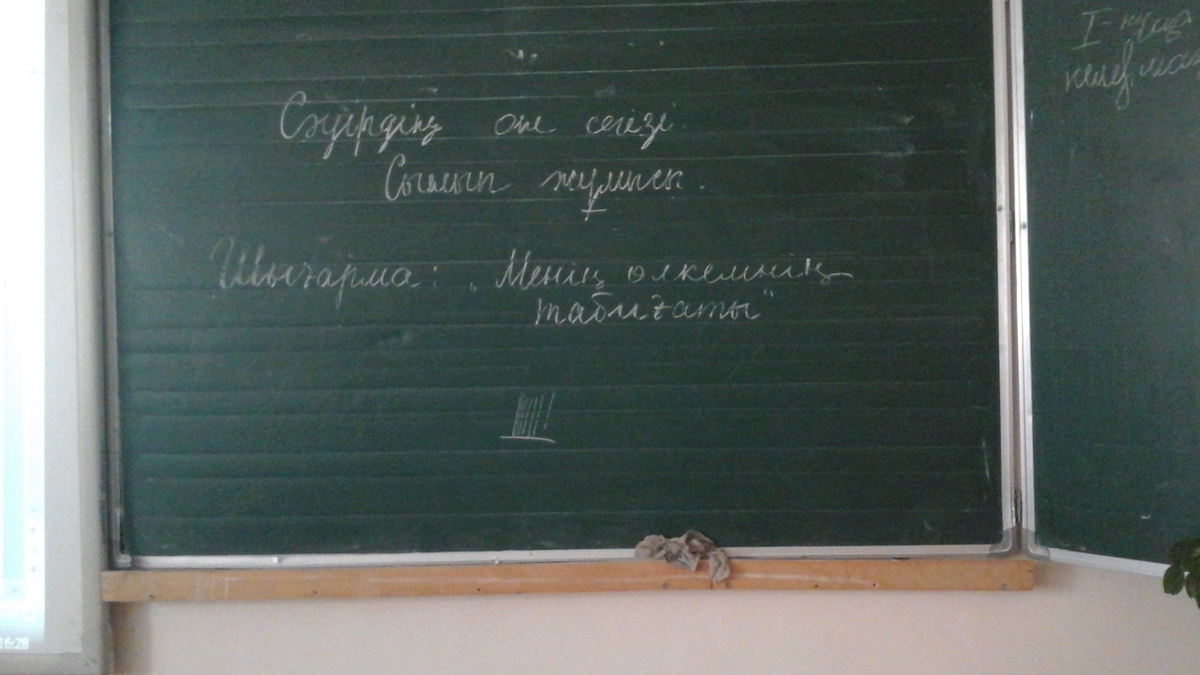 Сәуірдің он сегізі
Сынып жұмысы.
Шығарма: „Менің өлкемнің
табиғаты"
I-нұсқа
16:28